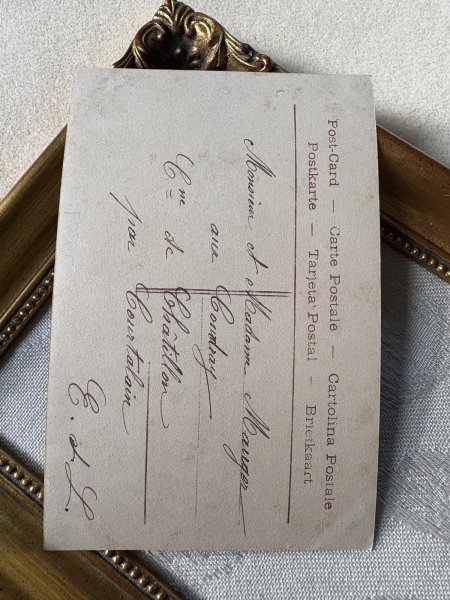 Post-Card — Carte Postale — Cartolina Postale
Postkarte — Tarjeta Postal — Briefkaart
Monsieur et Madame Mauger
aux Coudray
Cne de Châtillon
par Courtalain
E. et L.